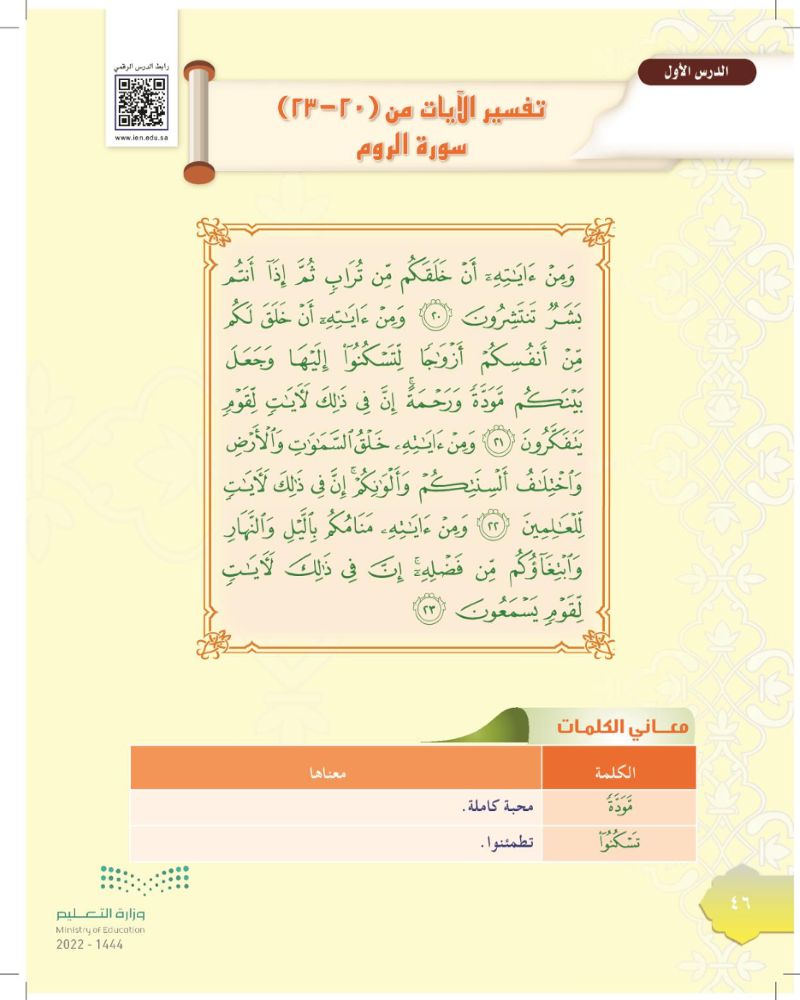 الدرس الأول
رابط الدرس الرقمي
www.ien.edu.sa
تفسير الآيات من (٢٠-٢٣)
سورة الروم
وَمِنْ ءَايَٰتِهِۦٓ أَنْ خَلَقَكُم مِّن تُرَابٍ ثُمَّ إِذَآ أَنتُم
بَشَرٌ تَنتَشِرُونَ ٢٠ وَمِنْ ءَايَٰتِهِۦٓ أَنْ خَلَقَ لَكُم
مِّنْ أَنفُسِكُمْ أَزْوَٰجًا لِّتَسْكُنُوٓا۟ إِلَيْهَا وَجَعَلَ
بَيْنَكُم مَّوَدَّةً وَرَحْمَةً ۚ إِنَّ فِى ذَٰلِكَ لَءَايَٰتٍ لِّقَوْمٍ
يَتَفَكَّرُونَ ٢١ وَمِنْ ءَايَٰتِهِۦ خَلْقُ ٱلسَّمَٰوَٰتِ وَٱلْأَرْضِ
وَٱخْتِلَٰفُ أَلْسِنَتِكُمْ وَأَلْوَٰنِكُمْ ۚ إِنَّ فِى ذَٰلِكَ لَءَايَٰتٍ
لِّلْعَٰلِمِينَ ٢٢ وَمِنْ ءَايَٰتِهِۦ مَنَامُكُم بِٱلَّيْلِ وَٱلنَّهَارِ
وَٱبْتِغَآؤُكُم مِّن فَضْلِهِۦٓ ۚ إِنَّ فِى ذَٰلِكَ لَءَايَٰتٍ
لِّقَوْمٍ يَسْمَعُونَ ٢٣
معاني الكلمات
الكلمة معناها
مَّوَدَّةً محبة كاملة.
تَسْكُنُوٓا۟ تطمئنوا.
وزارة التعليم
Ministry of Education
2022 - 1444
٤٦